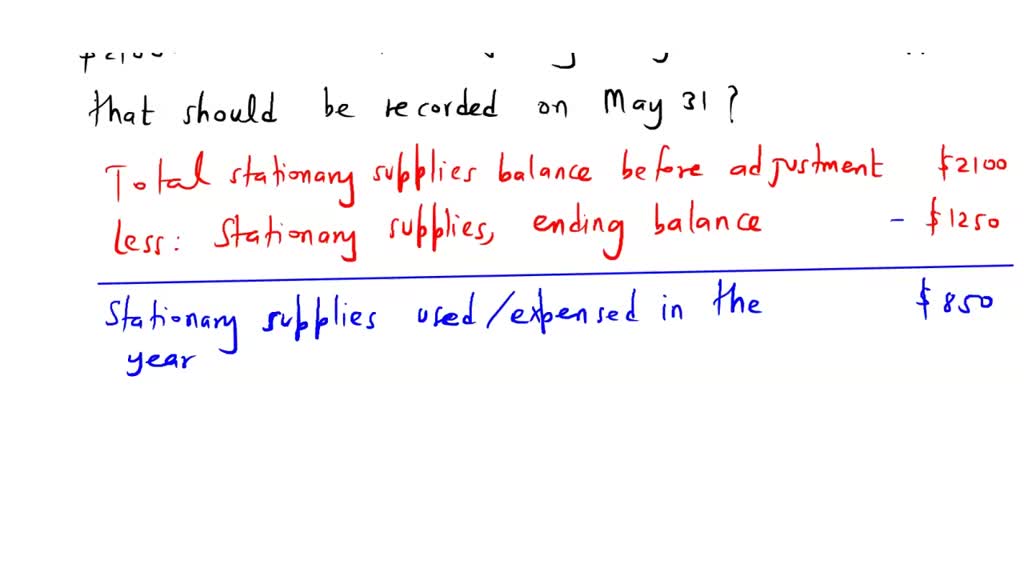 that should be recorded on May 31?
Total stationary supplies balance before adjustment $2100
Less: Stationary supplies, ending balance - $1250
Stationary supplies used/expensed in the $850
year